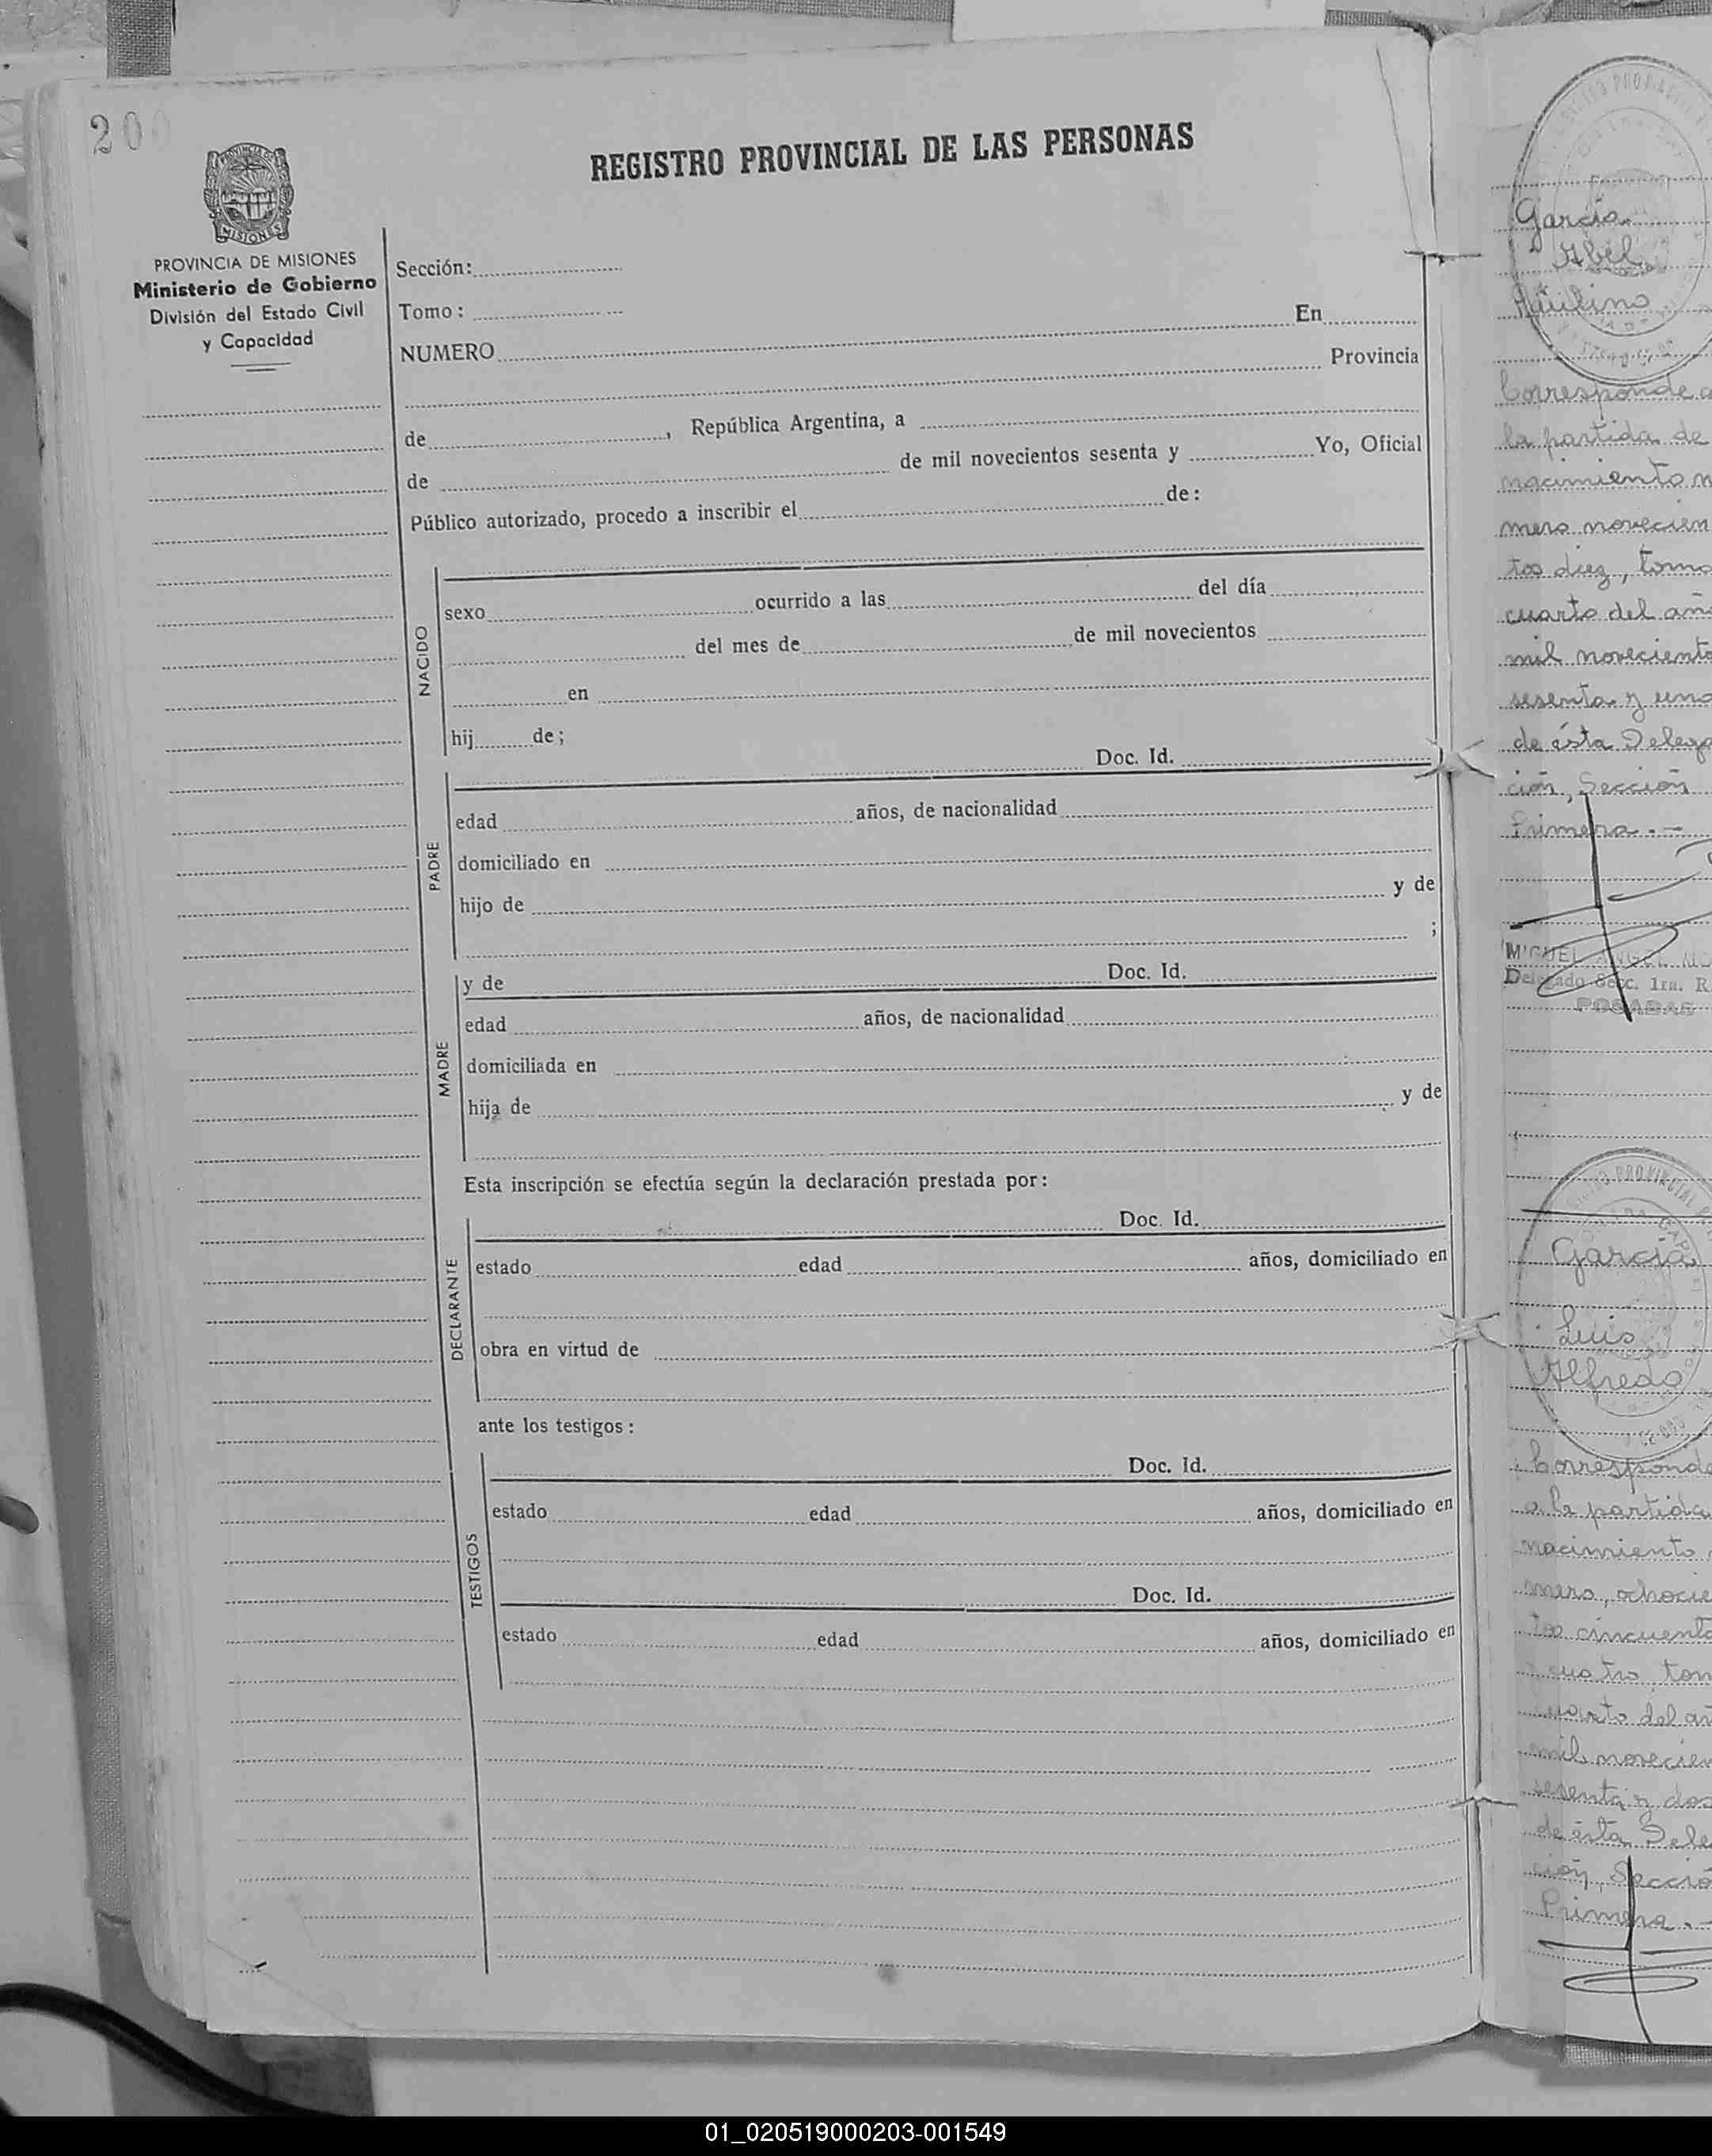 200
REGISTRO PROVINCIAL DE LAS PERSONAS
MISIONES
PROVINCIA DE MISIONES
Ministerio de Gobierno
División del Estado Civil
y Capacidad
Sección:
Tomo:
En
NUMERO
Provincia
de , República Argentina, a
de de mil novecientos sesenta y Yo, Oficial
Público autorizado, procedo a inscribir el de:
NACIDO
sexo ocurrido a las del día
del mes de de mil novecientos
en
hij de;
Doc. Id.
PADRE
edad años, de nacionalidad
domiciliado en
hijo de y de
;
y de Doc. Id.
MADRE
edad años, de nacionalidad
domiciliada en
hija de y de
Esta inscripción se efectúa según la declaración prestada por:
Doc. Id.
DECLARANTE
estado edad años, domiciliado en
obra en virtud de
ante los testigos:
Doc. Id.
TESTIGOS
estado edad años, domiciliado en
Doc. Id.
estado edad años, domiciliado en
García
Abel
Paulino
Corresponde a
la partida de
nacimiento n
mero novecien
tos diez, tomo
cuarto del añ
mil noveciento
sesenta y uno
de ésta Delega
ción, Sección
Primera.-
MIGUEL ANGEL
Delegado Secc. 1ra. R
POSADAS
García
Luis
Alfredo
Corresponde
a la partida
nacimiento
mero, ochocie
tos cincuenta
cuatro, tom
cuarto del añ
mil novecien
sesenta y dos
de ésta Dele
ción, Secció
Primera.-
01_020519000203-001549